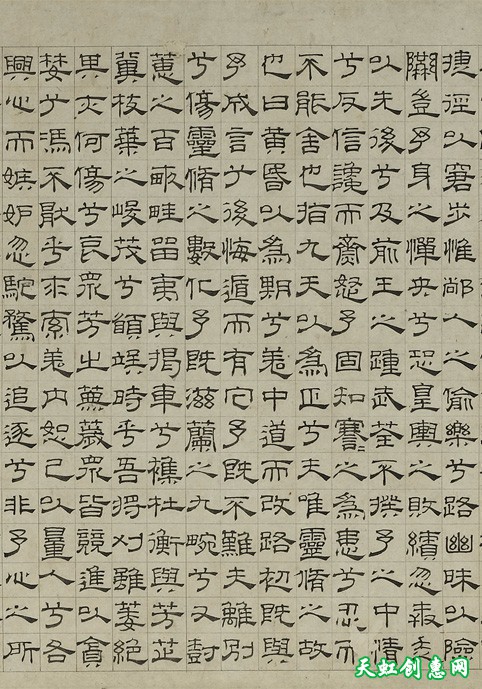 捷徑以窘步惟人之偷樂兮路幽昧以險
隘豈予身之憚殃兮恐皇輿之敗績忽奔走
以先後兮及前王之踵武荃不揆予之中情
兮反信讒而齌怒予固知謇〻之為患兮忍而
不能舍也指九天以為正兮夫唯靈脩之故
也曰黃昏以為期兮羌中道而改路初既與
予成言兮後悔遁而有它予既不難夫離別
兮傷靈脩之數化予既滋蘭之九畹兮又樹
蕙之百畝畦留夷與揭車兮雜杜衡與芳芷
冀枝葉之峻茂兮願竢時乎吾將刈雖萎絕
其亦何傷兮哀衆芳之蕪薉衆皆競進以貪
婪兮馮不厭乎求索羌內恕己以量人兮各
興心而嫉妒忽馳騖以追逐兮非予心之所
天虹创惠网